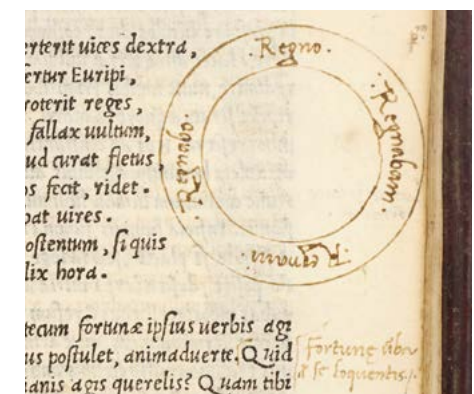 erterit uices dextra,
fertur Euripi,
roterit reges,
fallax uultum,
ud curat fletus,
s fecit, ridet.
bat uires.
ostentum, si quis
lix hora.
tecum fortunæ ipsius uerbis agi
us postulet, animaduerte. Quid
ianis agis querelis? Quam tibi
Regno.
Regnabam.
Regnavi
Regnabo.
Fortunę
d se loquentis.